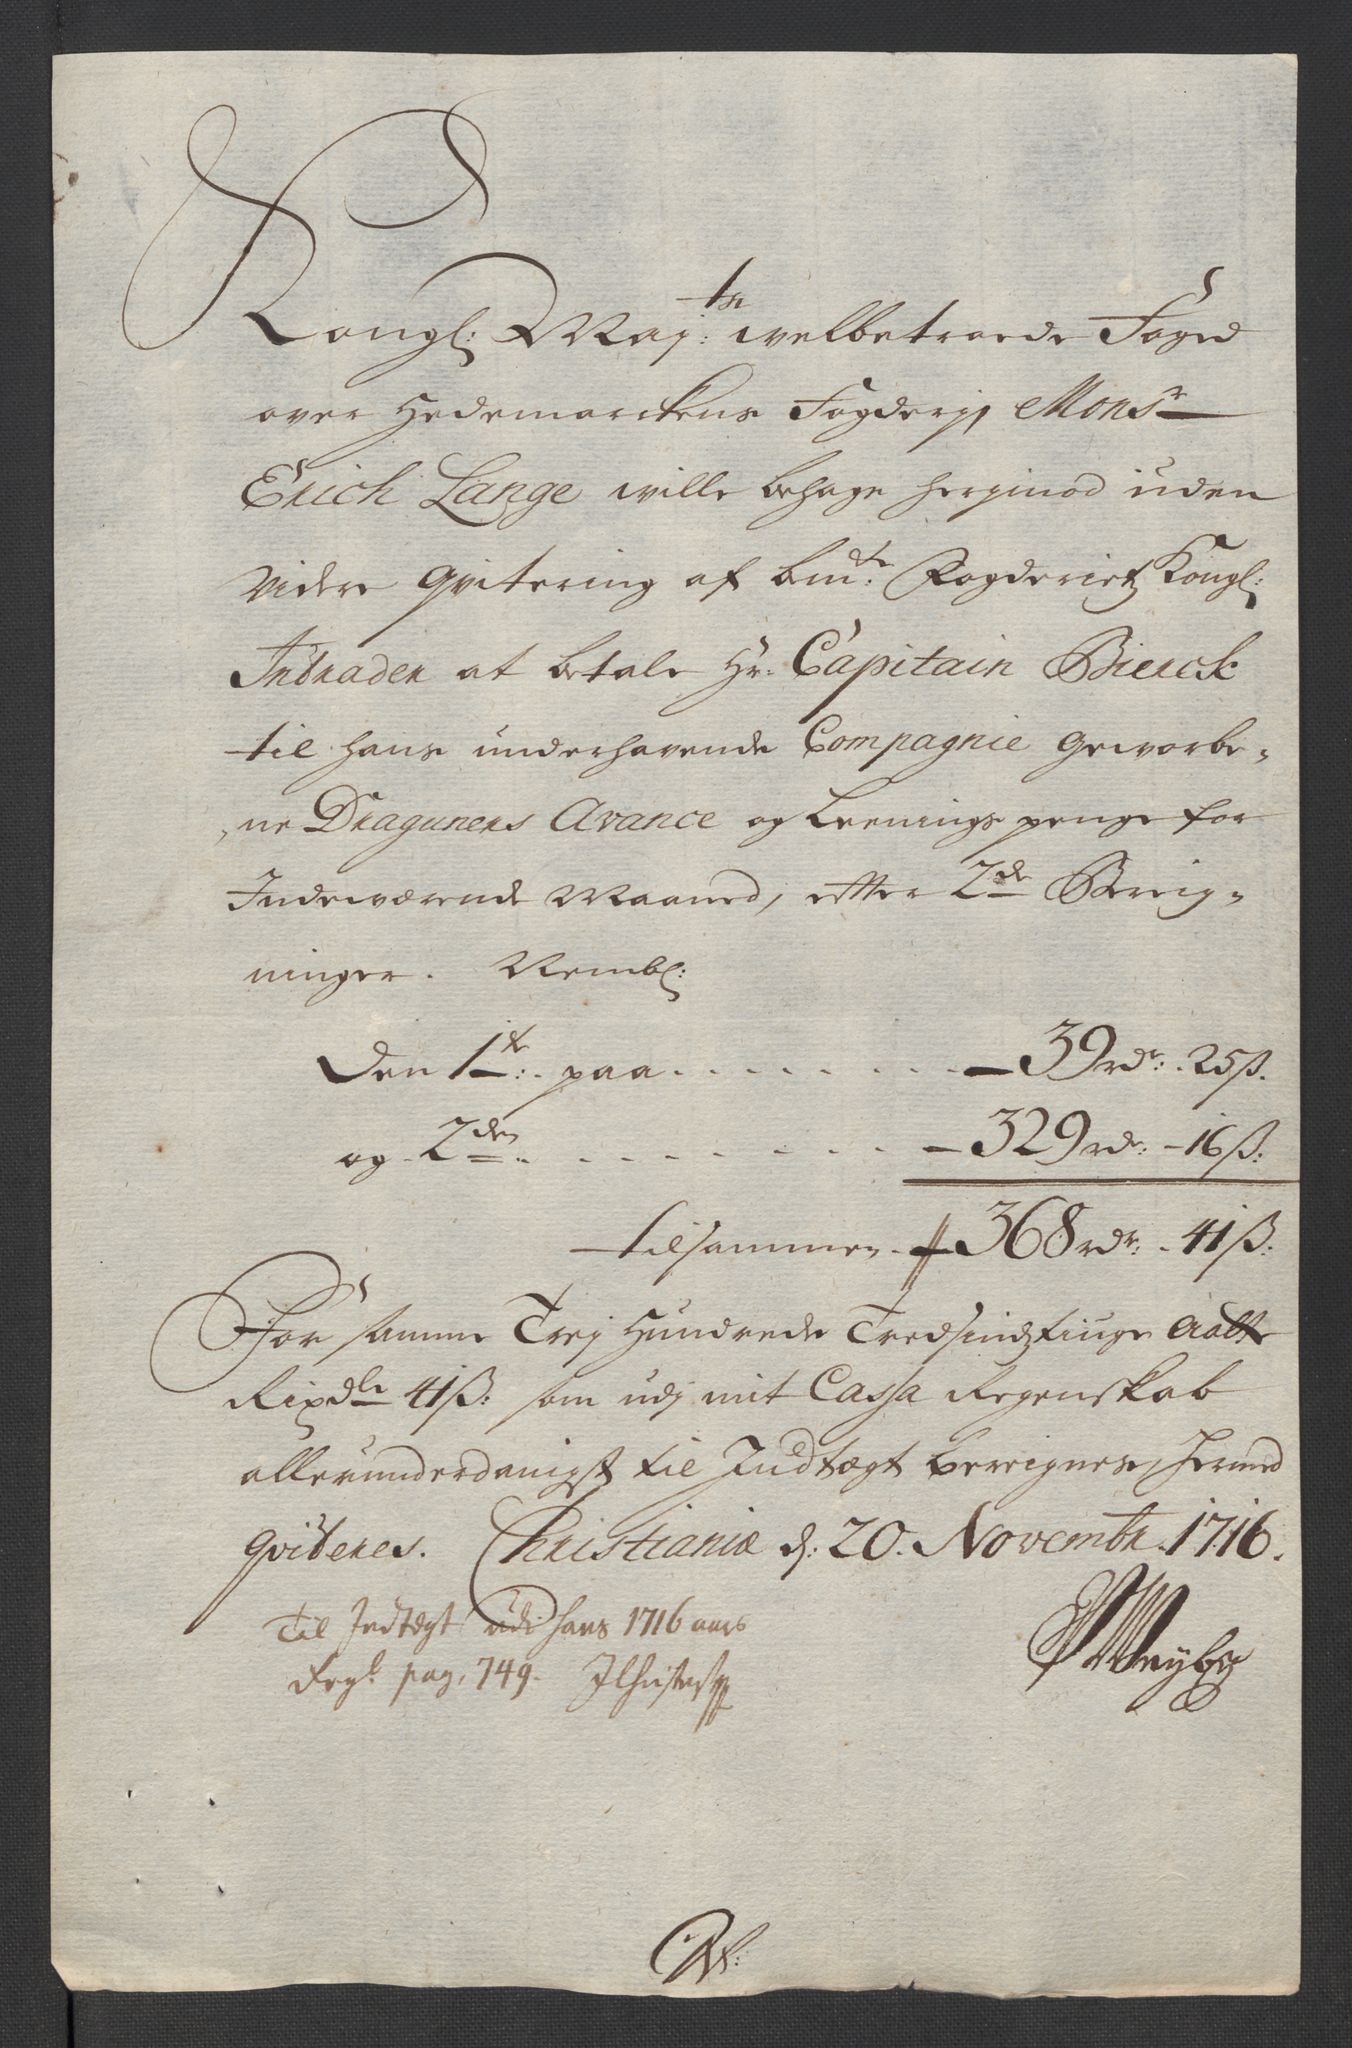 Kongl: Maj:ts welbetroede Foged
over Hedemarckens Fogderj, Monsr
Erich Lange wille behage herjmod uden
videre qvitering af bmte: Fogderietz Kongl:
Intrader at betale Hr: Capitain Bierck
til hans underhavende Compagnie geworbe-
-ne Draguners Avance og Leenings penge for
Indeværende Maaned, efter 2de Bereig-
ninger. Nembl:
Den 1te: paa - 39 rdr: - 25 ß.
og 2den - 329 rdr: - 16 ß:
tilsammen - 368 rdr: - 41 ß:
For samme Trej Hundrede Tredsindztiuge Aatte
Rixdlr 41 ß: som udj mit Cassa Regenskab
allerunderdanigst til Indtægt bereignes, hermed
qviteres. Christianiæ d: 20. Novembr. 1716.
Til Indtegt udi hans 1716 aars
Regl. pag. 749.